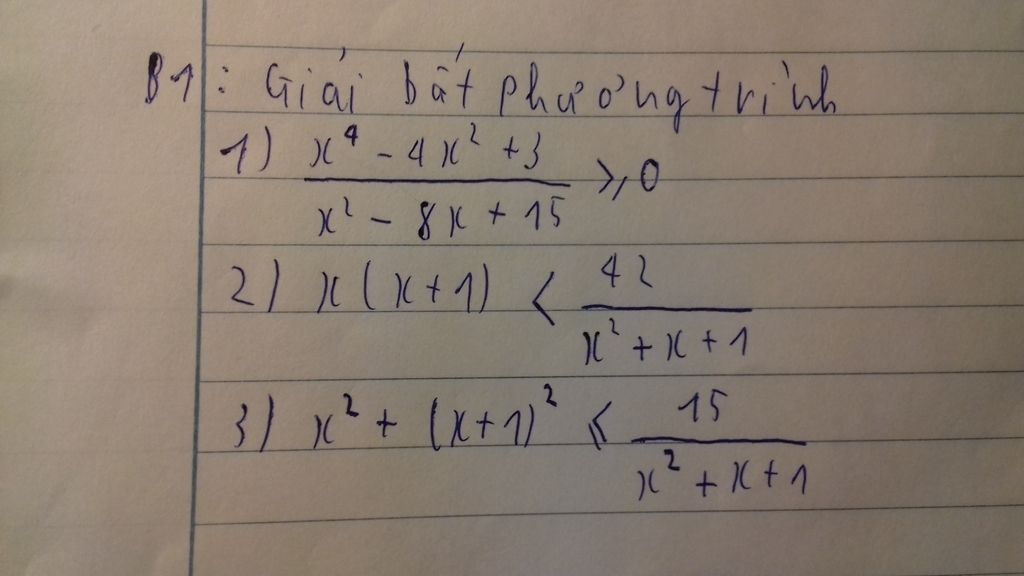 B1: Giải bất phương trình
1) \frac{x^4 - 4x^2 + 3}{x^2 - 8x + 15} ≥ 0
2) x(x+1) < \frac{42}{x^2 + x + 1}
3) x^2 + (x+1)^2 ≤ \frac{15}{x^2 + x + 1}